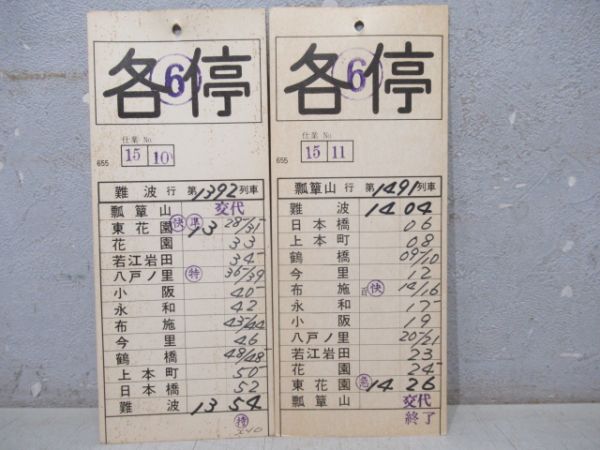 各停
6
仕業 No
15 10
655
難波行 第1392列車
瓢簞山 交代
東花園 快 準 13 28/31
花園 33
若江岩田 34
八戸ノ里 特 36/39
小阪 40
永和 42
布施 43/44
今里 46
鶴橋 48/48
上本町 50
日本橋 52
難波 13 54
特
各停
6
仕業 No
15 11
655
瓢簞山行 第1491列車
難波 14 04
日本橋 06
上本町 08
鶴橋 09/10
今里 12
布施 快 14/16
永和 17
小阪 19
八戸ノ里 20/21
若江岩田 23
花園 24
東花園 急 14 26
瓢簞山 交代
終了